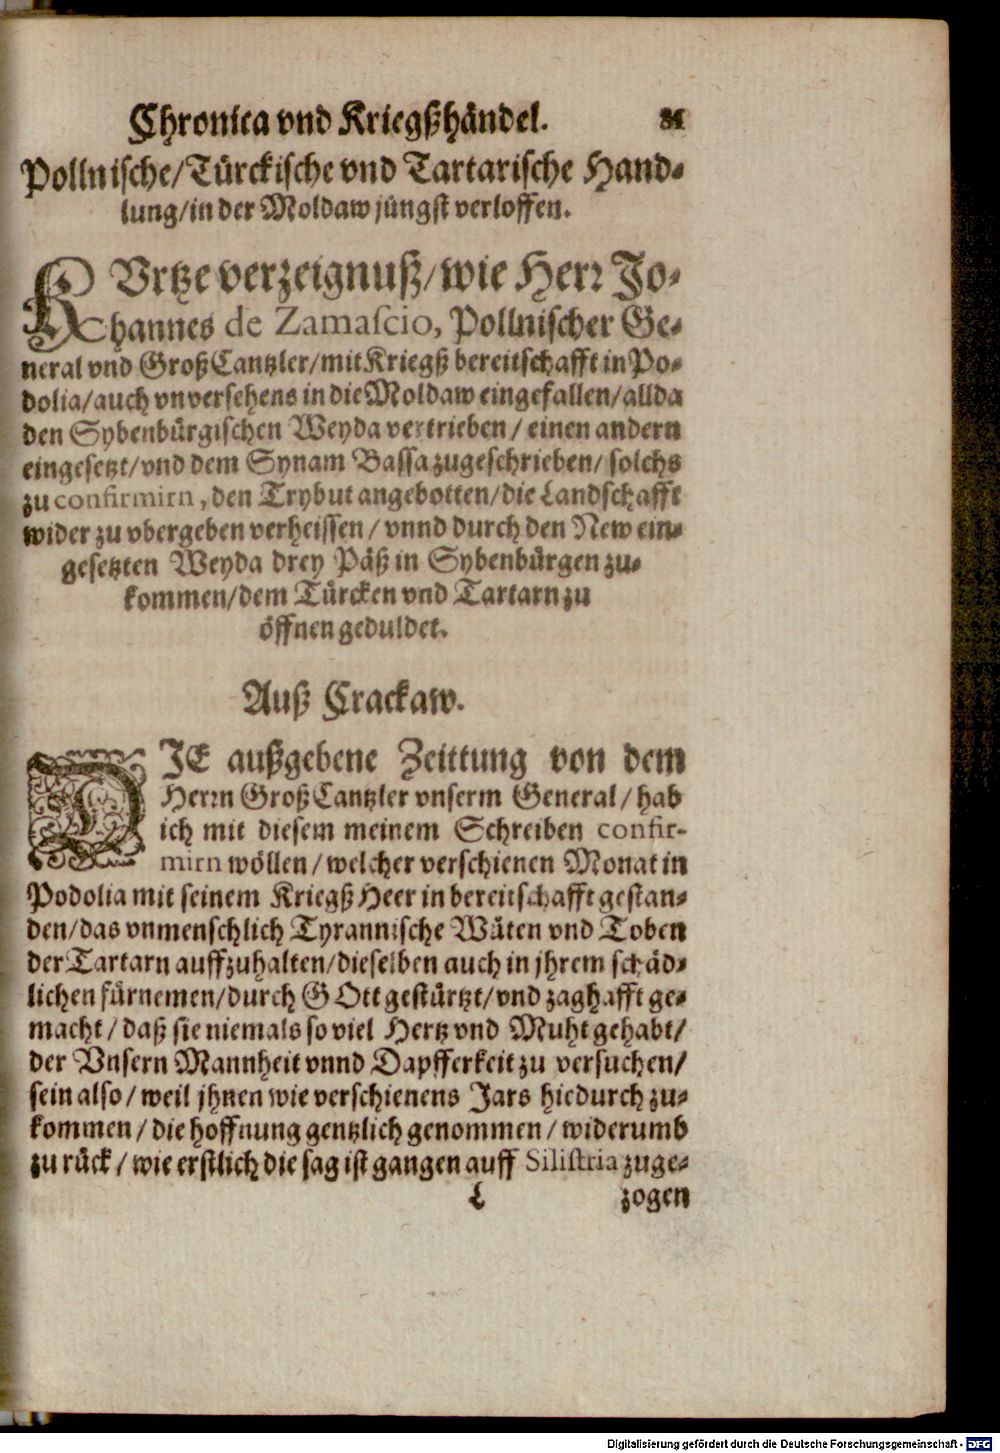 Chronica vnd Kriegßhändel.
Pollnische/Türckische vnd Tartarische Hand-
lung/in der Moldaw jüngst verloffen.
KVrtze verzeignuß/wie Herr Jo-
hannes de Zamascio, Pollnischer Ge-
neral vnd GroßCantzler/mit Kriegß bereitschafft in Po-
dolia/auch vnversehens in die Moldaw eingefallen/allda
den Sybenbürgischen Weyda vertrieben/einen andern
eingesetzt/vnd dem Synam Bassa zugeschrieben/solchs
zu confirmirn, den Trybut angebotten/die Landschafft
wider zu vbergeben verheissen/vnnd durch den New ein-
gesetzten Weyda drey Päß in Sybenbürgen zu-
kommen/dem Türcken vnd Tartarn zu
öffnen geduldet.
Auß Crackaw.
DIE außgebene Zeittung von dem
Herrn GroßCantzler vnserm General/hab
ich mit diesem meinem Schreiben confir-
mirn wöllen/welcher verschienen Monat in
Podolia mit seinem Kriegß Heer in bereitschafft gestan-
den/das vnmenschlich Tyrannische Wüten vnd Toben
der Tartarn auffzuhalten/dieselben auch in jhrem schäd-
lichen fürnemen/durch GOtt gestürtzt/vnd zaghafft ge-
macht/daß sie niemals so viel Hertz vnd Muht gehabt/
der Vnsern Mannheit vnnd Dapfferkeit zu versuchen/
sein also/weil jhnen wie verschienens Jars hiedurch zu-
kommen/die hoffnung gentzlich genommen/widerumb
zu rück/wie erstlich die sag ist gangen auff Silistria zuge-
L zogen
Digitalisierung gefördert durch die Deutsche Forschungsgemeinschaft - DFG